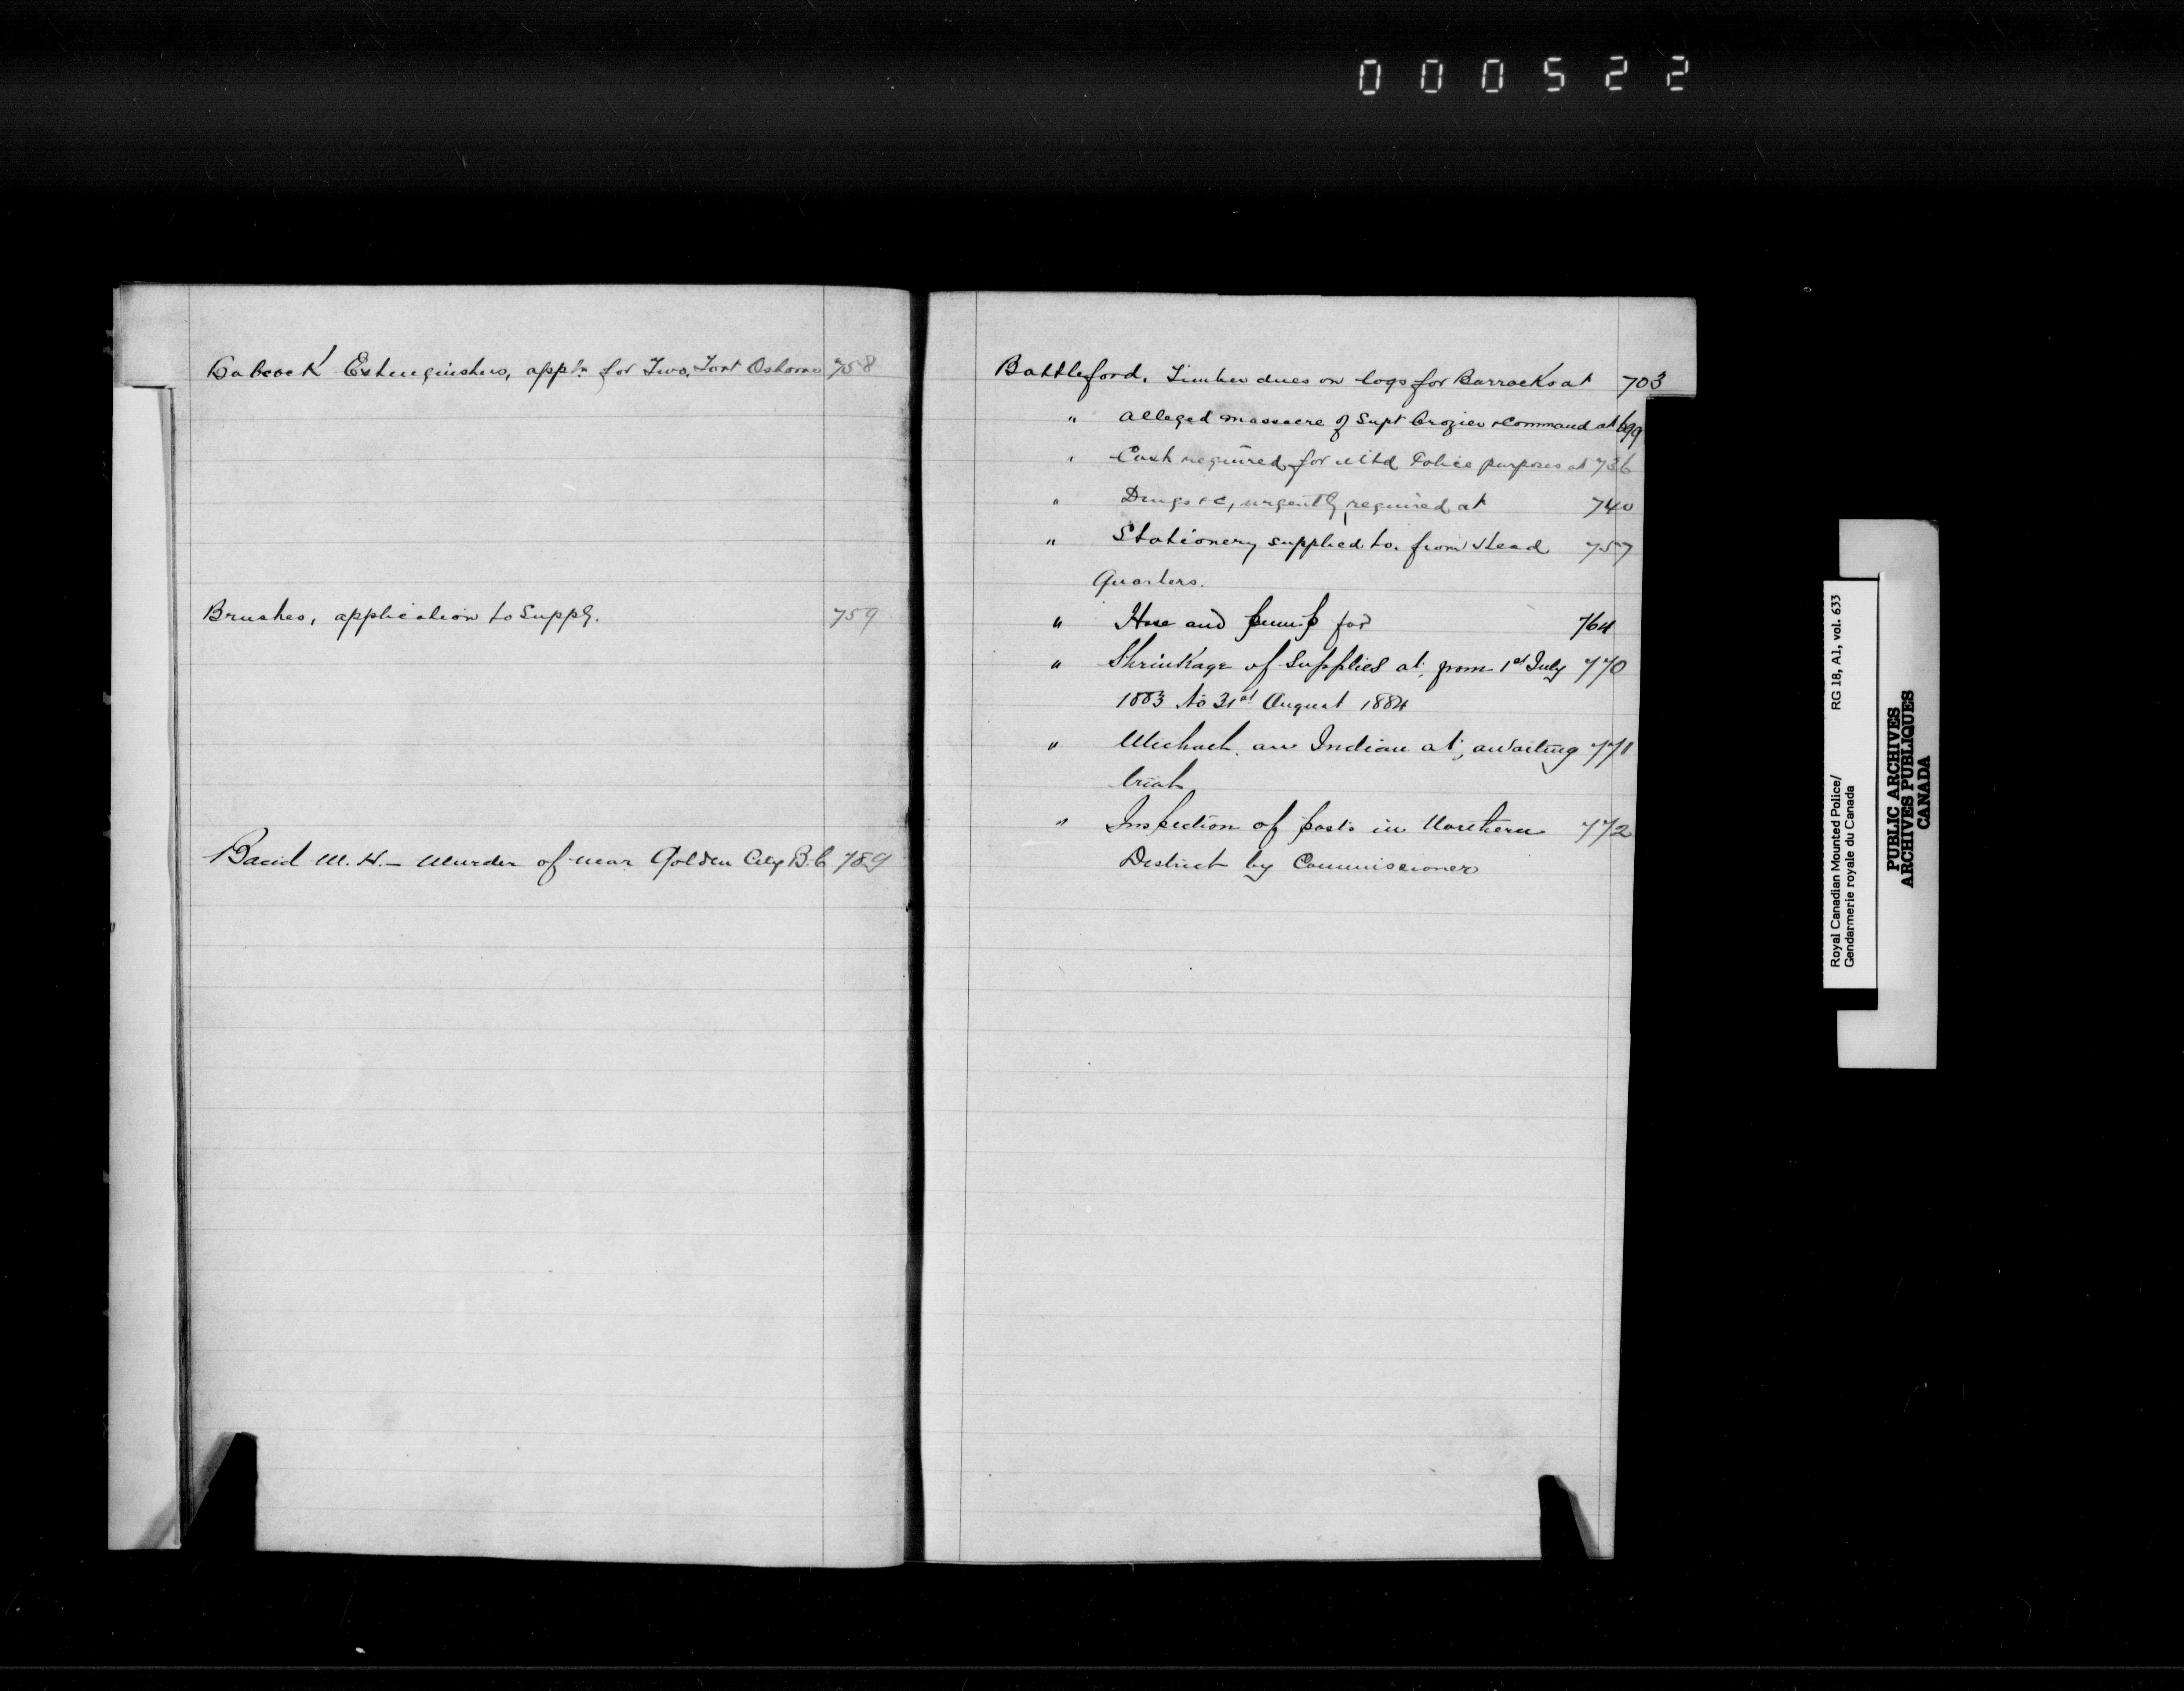 000522
Babcock Extinguishers, appl'n for Two, Fort Osborne 758
Brushes, application to Supply. 759
Baird M. H. - Murder of near Golden City B.C 789
Battleford, Timber dues on logs for Barracks at 703
" Alleged massacre of Supt Crozier & Command at 699
" Cash required for Mtd Police purposes at 736
" Drugs &c, urgently required at 740
" Stationery supplied to, from Head 757
Quarters.
" Hose and pump for 764
" Shrinkage of Supplies at, from 1st July 770
1883 to 31st August 1884
" Michael, an Indian at, awaiting 771
trial
" Inspection of posts in Northern 772
District by Commissioner
Royal Canadian Mounted Police/ RG 18, A1, vol. 633
Gendarmerie royale du Canada
PUBLIC ARCHIVES
ARCHIVES PUBLIQUES
CANADA